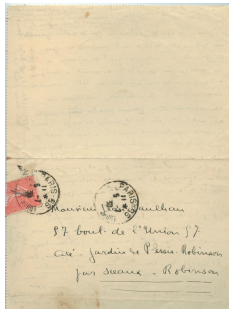 PARIS-55
PARIS-55
Monsieur Paulhan
57 bout. de l'Union 57
Cité Jardin de Plessis-Robinson
par Sceaux - Robinson